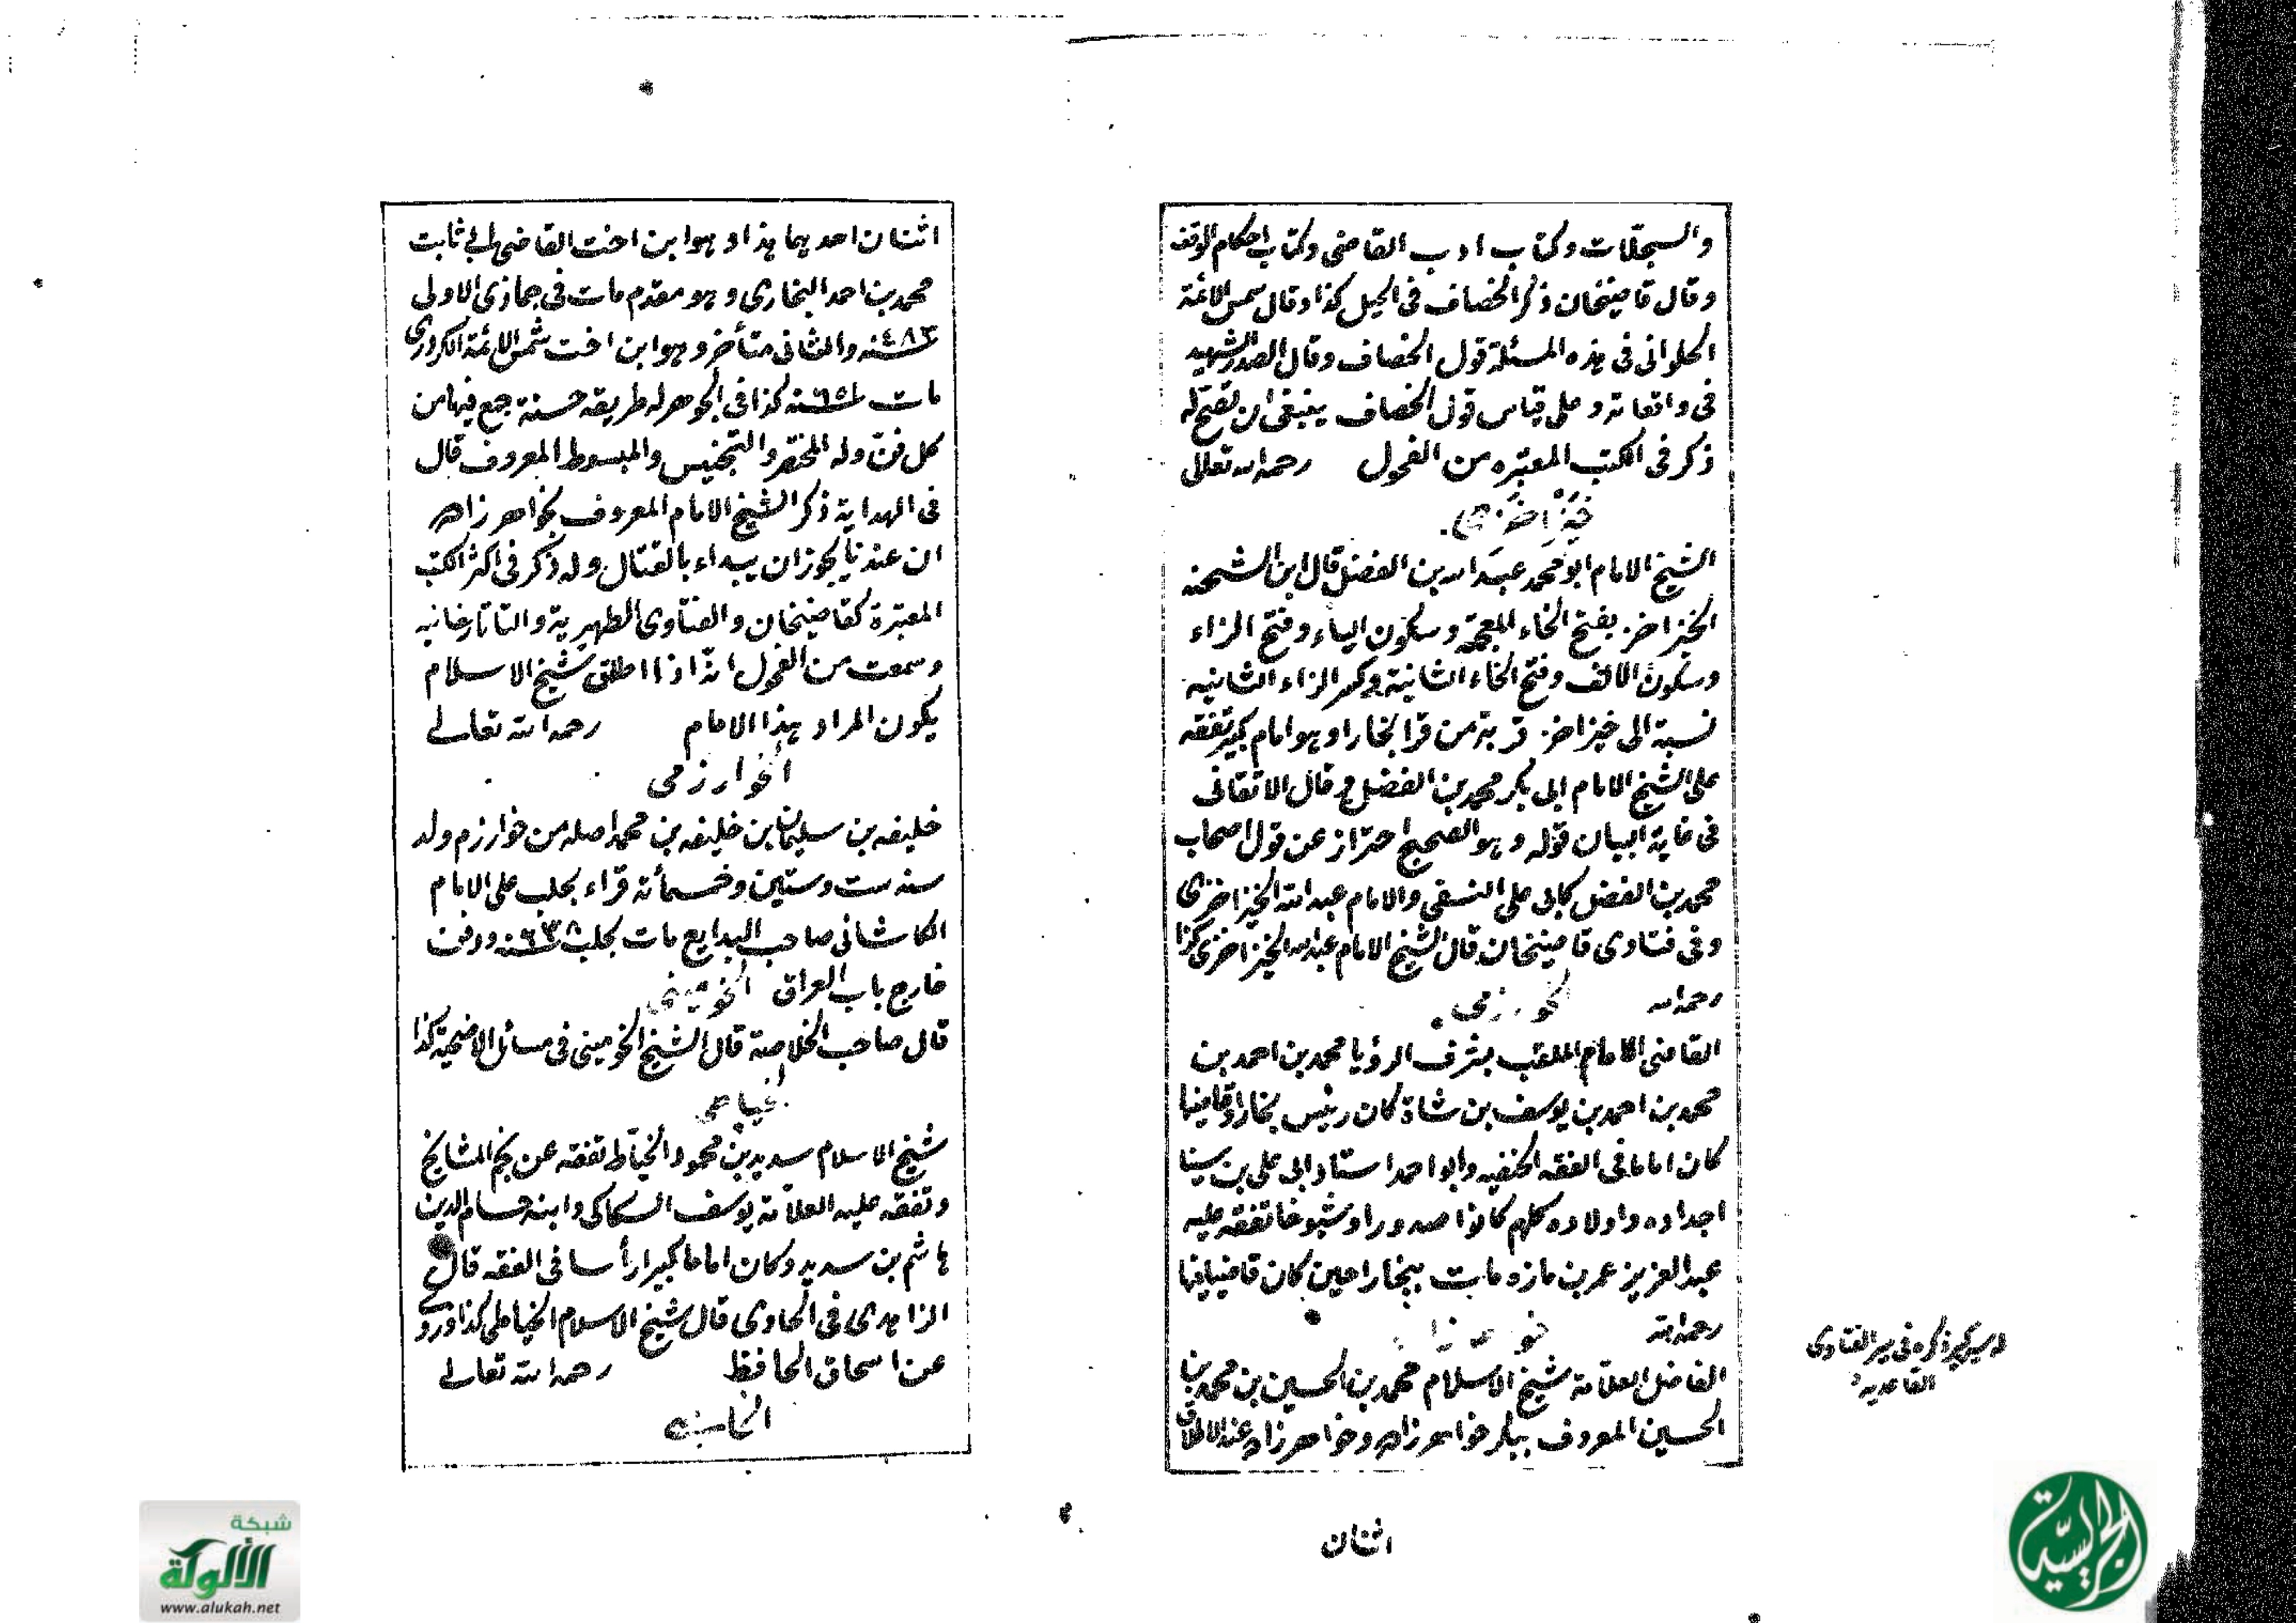 والسجلات وكتاب ادب القاضى وكتاب احكام الوقف
وقال قاضيخان ذكر الخصاف فى الحيل كذا وقال شمس الائمة
الحلوانى فى هذه المسئلة قول الخصاف وقال الصدر الشهيد
فى واقعاته وعلى قياس قول الخصاف ينبغى ان
ذكر فى الكتب المعتبره من الفحول رحمه الله تعالى
الشيخ الامام ابو محمد عبد الله بن الفضل قال ابن الشحنه
الخيزاخز بفتح الخاء المعجمة وسكون الياء وفتح الزاء
وسكون الالف وفتح الخاء الثانية وكسر الزاء الثانيه
نسبة الى خيزاخز قرية من قرا بخارا وهو امام كبير تفقه
على الشيخ الامام ابى بكر محمد بن الفضل وقال الاتقانى
فى غاية البيان قوله وهو الصحيح احتراز عن قول اصحاب
محمد بن الفضل كابى على النسفى والامام عبد الله الخيزاخزى
وفى فتاوى قاضيخان قال الشيخ الامام عبد الله الخيزاخزى كذا
رحمه الله
القاضى الامام الملقب بشرف الرؤيا محمد بن احمد بن
محمد بن احمد بن يوسف بن شاة كان رئيس بخارا وقاضيها
كان اماما فى الفقه الحنفيه وابو احمد استاد ابى على بن سينا
اجداده واولاده كلهم كانوا صدورا وشيوخا تفقه عليه
عبد العزيز عمر بن مازه مات ببخارا حين كان قاضيا فيها
رحمه الله
الفاضل العلامة شيخ الاسلام محمد بن الحسين بن محمد بن
الحسين المعروف ببكر خواهر زاده وخواهر زاده عند الاطلاق
القاعديه
اثنان
اثنان احديهما هذا وهو ابن اخت القاضى ابى ثابت
محمد بن احمد البخارى وهو مقدم مات فى جماذى الاولى
٤٨٣ سنه والثانى متأخر وهو ابن اخت شمس الائمة الكردرى
مات ٦٥١ سنه كذا فى الجوهر له طريقه حسنة جمع فيها من
كل فن وله المختصر والتجنيس والمبسوط المعروف قال
فى الهداية ذكر الشيخ الامام المعروف بخواهر زاده
ان عندنا يجوز ان يبداء بالقتال وله ذكر فى اكثر الكتب
المعتبرة كقاضيخان والفتاوى الظهيرية والتاتارخانيه
وسمعت من الفحول انه اذا اطلق شيخ الاسلام
يكون المراد هذا الامام رحمه الله تعالى
الخوارزمى
خليفه بن سليمان بن خليفه بن محمد اصله من خوارزم ولد
سنه ست وستين وخمسمأئة قراء بحلب على الامام
الكاشانى صاحب البدايع مات بحلب ٦٣٨ سنه ودفن
خارج باب العراق الخومينى
قال صاحب الخلاصة قال الشيخ الخومينى فى مسائل الاضحية كذا
الخياطى
شيخ الاسلام سديد بن محمود الخياط تفقه عن نجم المشايخ
وتفقه عليه العلامة يوسف السكاكى وابنه حسام الدين
هاشم بن سديد وكان اماما كبيرا رأسا فى الفقه قال
الزاهدى فى الحاوى قال شيخ الاسلام الخياطى كذا وروى
عن اسحاق الحافظ رحمه الله تعالى
شبكة
الألوكة
www.alukah.net